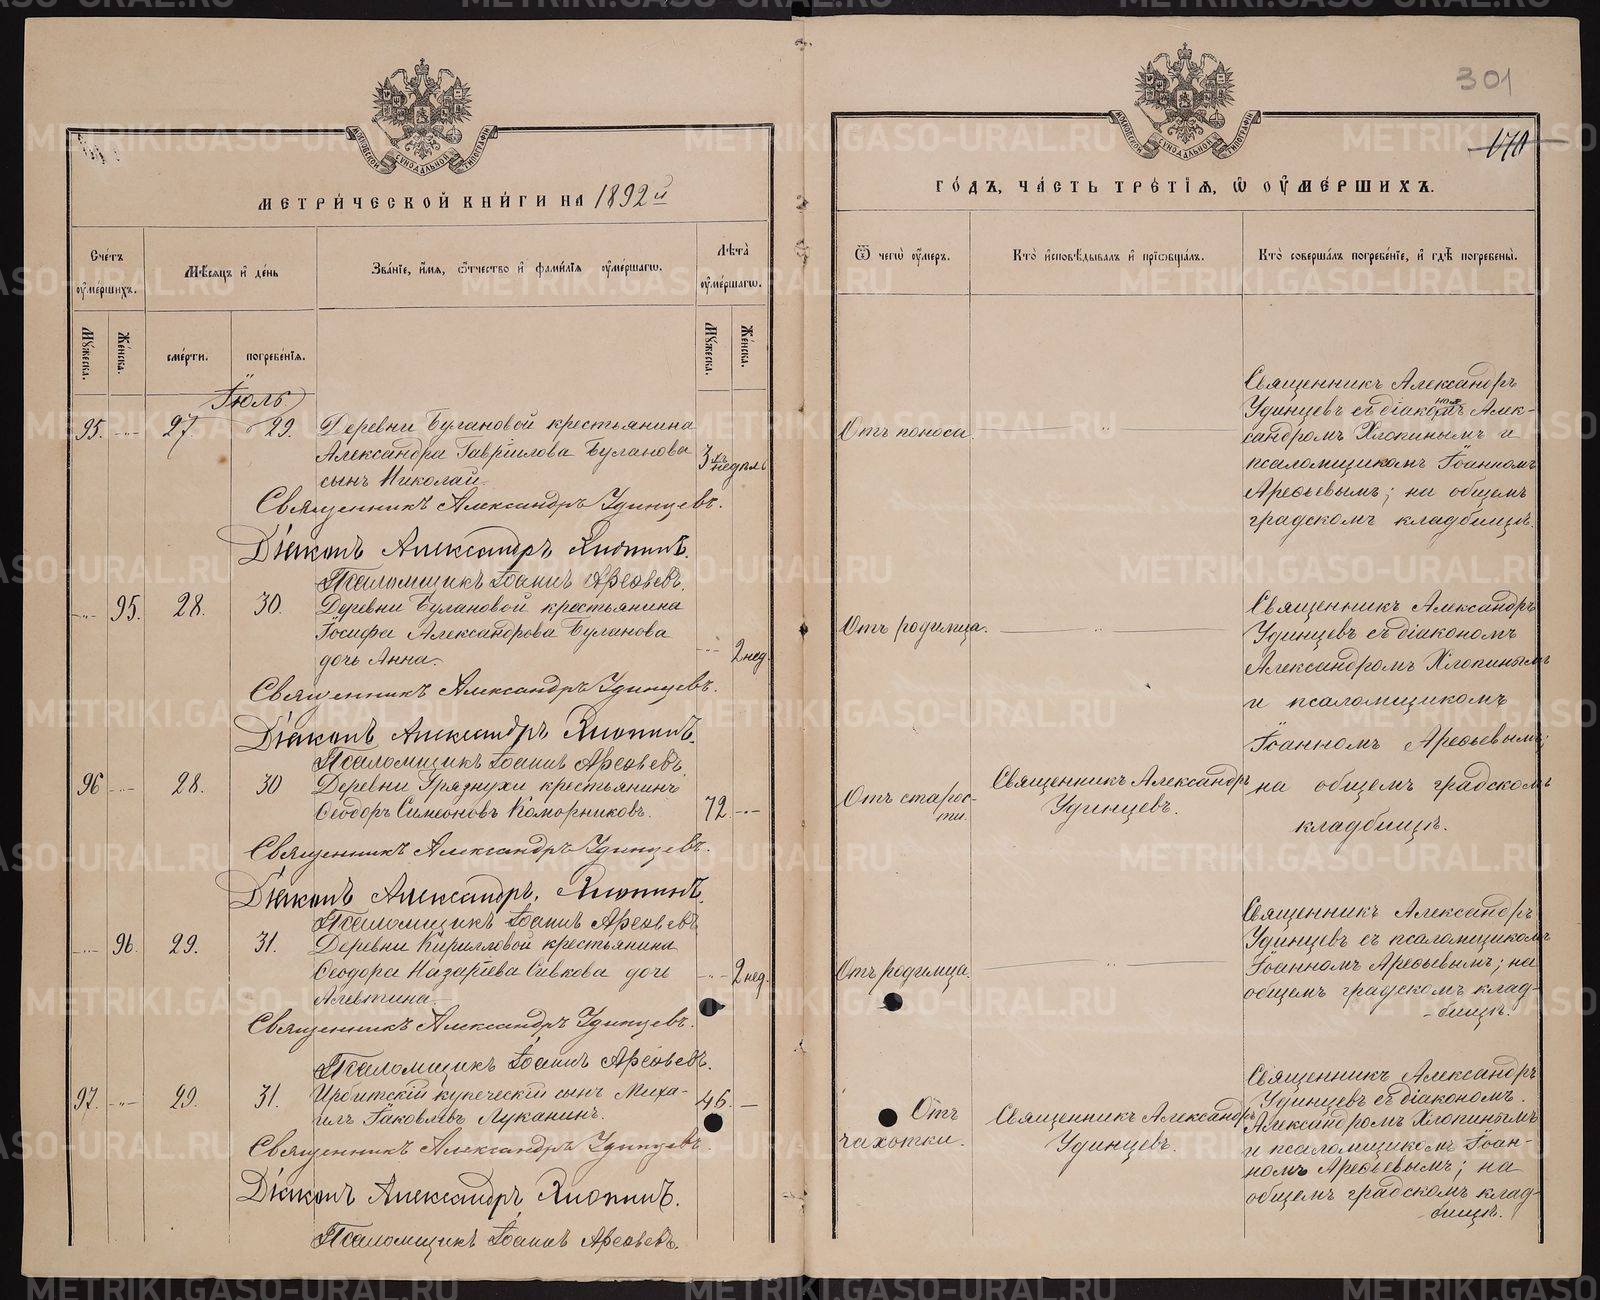 МЕТРИ́ЧЕСКОЙ КНИ́ГИ НА 1892й
Счётъ
ᲂу҆ме́ршихъ.
Мѣ́сяцъ и҆ де́нь
Зва́нїе, и҆́мя, ѻ҆́тчество и҆ фами́лїя ᲂу҆ме́ршагѡ.
Лѣ́та
ᲂу҆ме́ршагѡ.
Мꙋ́жеска.
Же́нска.
сме́рти.
погребе́нїя.
Мꙋ́жеска.
Же́нска.
Іюль
95. -„- 27 29. Деревни Булановой крестьянина
Александра Гавріилова Буланова
сынъ Николай. 3хъ недѣль
Священникъ Александръ Удинцевъ.
Діаконъ Александръ Хлопинъ.
Псаломщикъ Іоаннъ Арефьевъ.
-„- 95. 28. 30. Деревни Булановой крестьянина
Іосифа Александрова Буланова
дочь Анна. -„- 2 нед.
Священникъ Александръ Удинцевъ.
Діаконъ Александръ Хлопинъ.
Псаломщикъ Іоаннъ Арефьевъ.
96 -„- 28. 30 Деревни Гряднухи крестьянинъ
Ѳеодоръ Симеоновъ Коморниковъ. 72. -„-
Священникъ Александръ Удинцевъ.
Діаконъ Александръ Хлопинъ.
Псаломщикъ Іоаннъ Арефьевъ
-„- 96. 29. 31. Деревни Кирилловой крестьянина
Ѳеодора Назаріева Сивкова дочь
Алевтина. -„- 2 нед.
Священникъ Александръ Удинцевъ.
Псаломщикъ Іоаннъ Арефьевъ.
97. -„- 29. 31. Ирбитскій купеческій сынъ Миха-
илъ Іаковлевъ Луканинъ. 46. -
Священникъ Александръ Удинцевъ.
Діаконъ Александръ Хлопинъ.
Псаломщикъ Іоаннъ Арефьевъ.
301
170
ГО́ДЪ, ЧА́СТЬ ТРЕ́ТІѦ, Ѽ ОУ҆МЕ́РШИХЪ.
Ѿ чегѡ̀ ᲂу҆́меръ.
Кто̀ и҆сповѣ́дывалъ и҆ прїѡбща́лъ.
Кто̀ соверша́лъ погребе́нїе, и҆ гдѣ̀ погребены̀.
Отъ поноса. -„-
Священникъ Александръ
Удинцевъ съ діакономъ Алек-
сандромъ Хлопинымъ и
псаломщикомъ Іоанномъ
Арефьевымъ; на общемъ
градскомъ кладбищѣ.
Отъ родимца. -„-
Священникъ Александръ
Удинцевъ съ діакономъ
Александромъ Хлопинымъ
и псаломщикомъ
Іоанномъ Арефьевымъ;
на общемъ градскомъ
кладбищѣ.
Отъ старос-
ти.
Священникъ Александръ
Удинцевъ.
Отъ родимца. -„-
Священникъ Александръ
Удинцевъ съ псаломщикомъ
Іоанномъ Арефьевымъ; на
общемъ градскомъ клад-
бищѣ.
Отъ
чахотки.
Священникъ Александръ
Удинцевъ.
Священникъ Александръ
Удинцевъ съ діакономъ
Александромъ Хлопинымъ
и псаломщикомъ Іоан-
номъ Арефьевымъ; на
общемъ градскомъ клад-
бищѣ.
METRIKI.GASO-URAL.RU